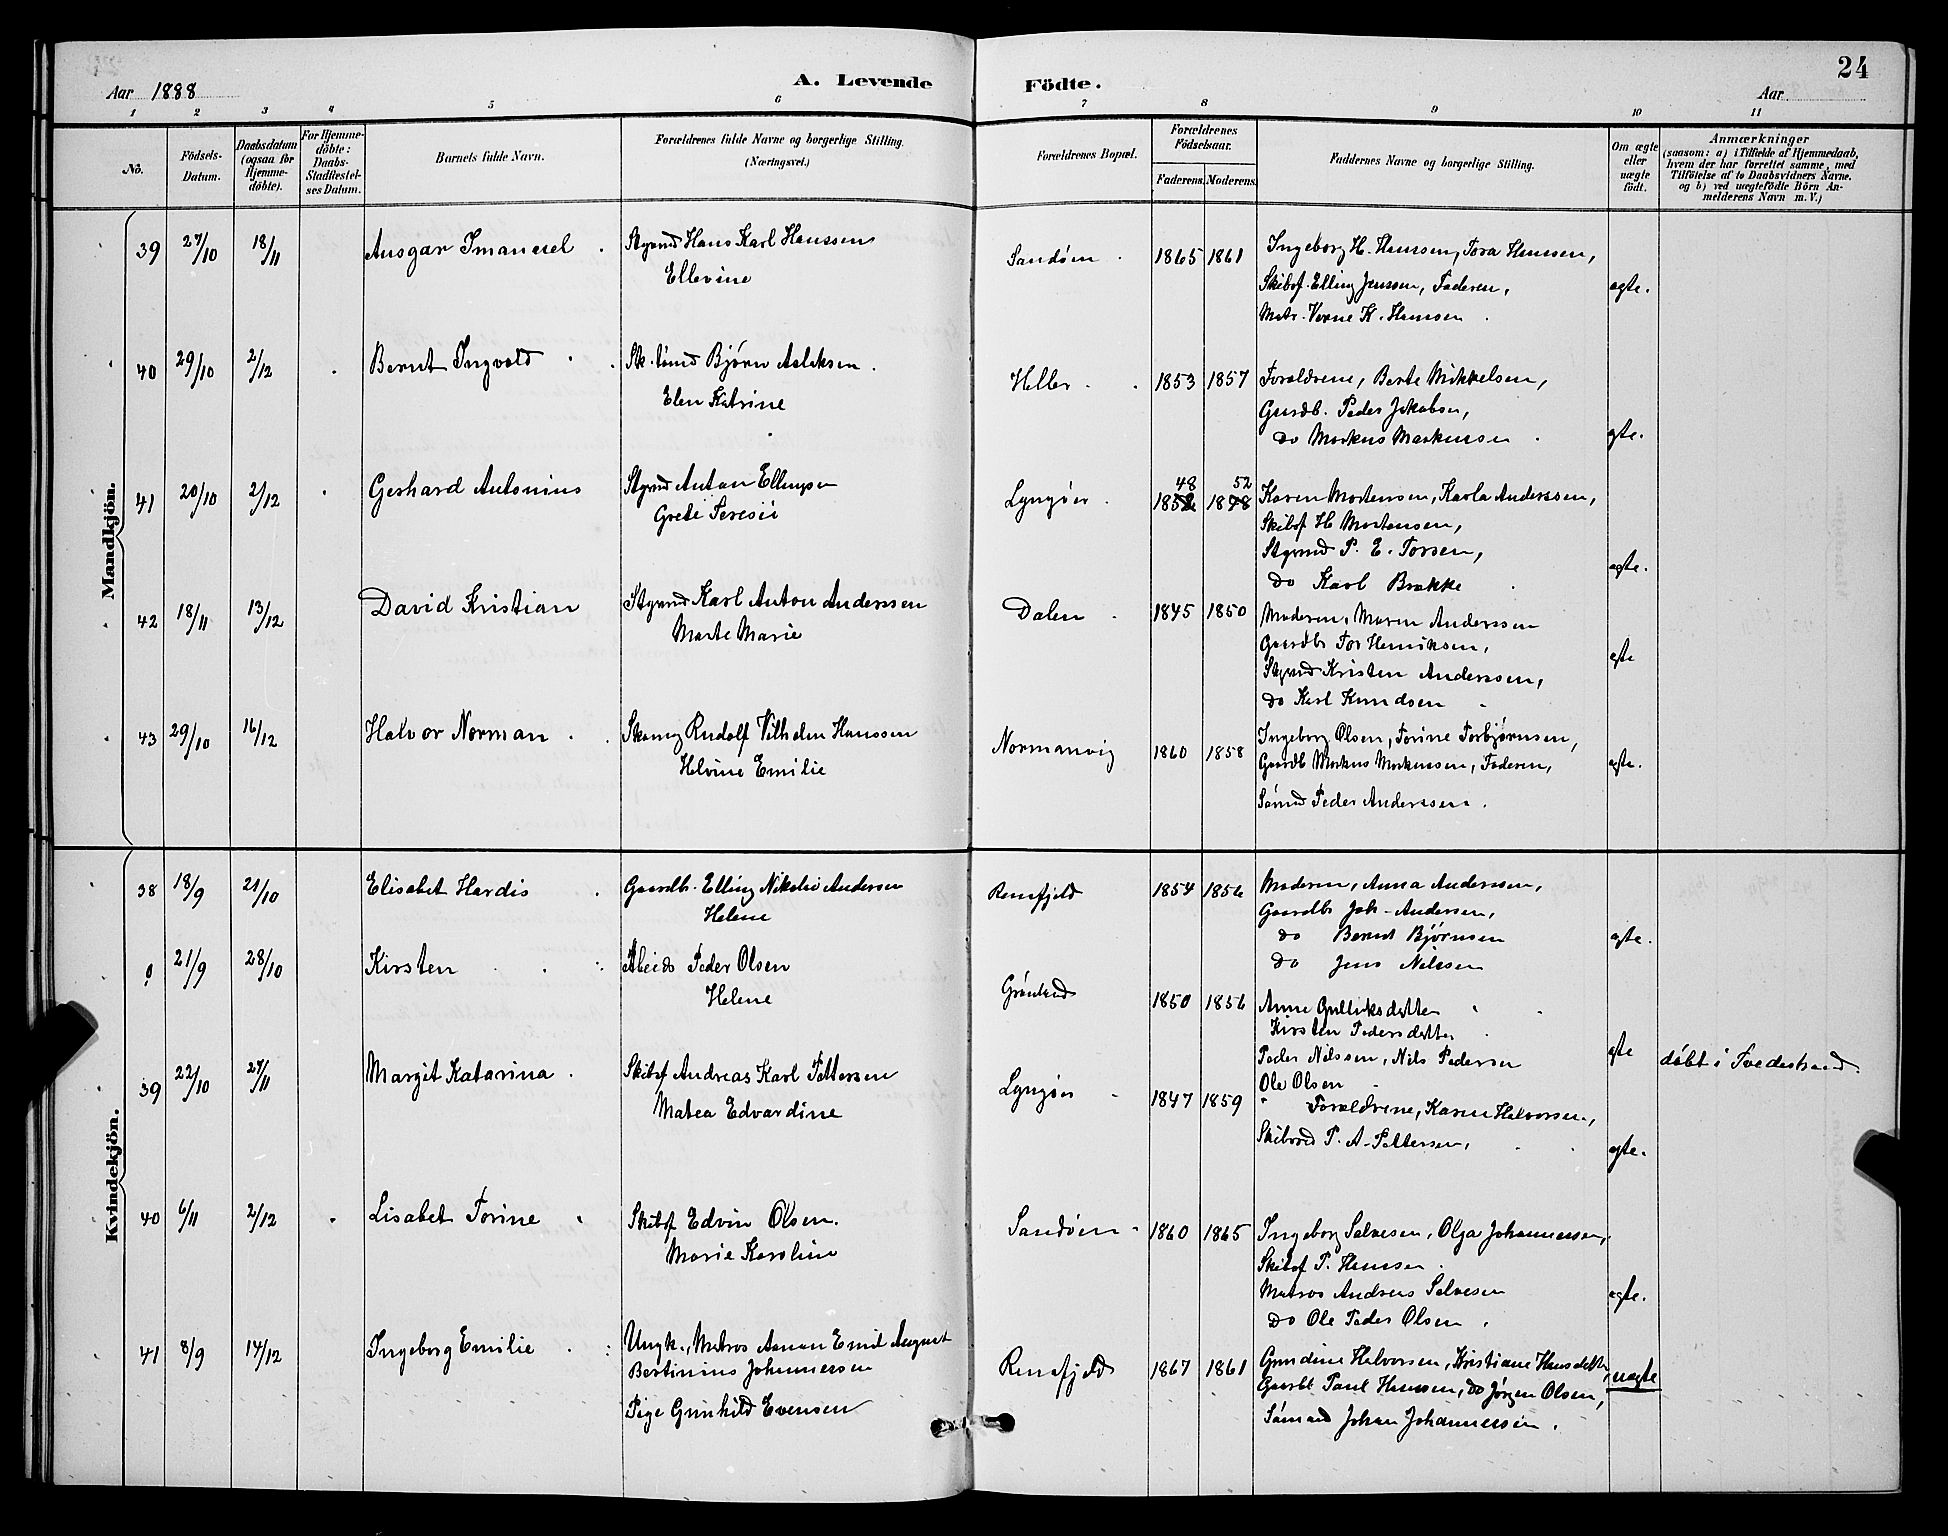 24
Aar 1888
A. Levende
Födte.
Aar
1 2 3 4 5 6 7 8 9 10 11
No.
Födsels-Datum.
Daabsdatum (ogsaa for Hjemme-döbte).
For Hjemme-döbte: Daabs-Stadfæstelses Datum.
Barnets fulde Navn.
Forældrenes fulde Navne og borgerlige Stilling.
(Næringsvei.)
Forældrenes Bopæl.
Forældrenes Födselsaar.
Faderens. Moderens.
Faddernes Navne og borgerlige Stilling.
Om ægte eller uægte födt.
Anmærkninger
(saasom: a) i Tilfælde af Hjemmedaab,
hvem der har forrettet samme, med
Tilföielse af to Daabsvidners Navne.
og b) ved uægtefödte Börn An-
melderens Navn m. V.)
Mandkjön.
39 27/10 18/11 Ansgar Imanuel Styrmd Hans Karl Hanssen
Ellevine
Sandøen 1865 1861 Ingeborg H. Hanssen, Tora Hanssen,
Skibsf. Elling Jenssen, Faderen,
Matr. K. Hanssen
ægte.
40 29/10 2/12 Bernt Ingvald Sk.tömd Bjørn Aslaksen
Elen Katrine
Heller 1853 1857 Forældrene, Berte Mikkelsen,
Gaardb. Peder Jakobsen,
do Markus Markussen
ægte.
41 20/10 2/12 Gerhard Antonius Styrmd Anton Ellingsen
Grete Teresie
Lyngøer 48 52
1852 1848 Karen Mortensen, Karla Anderssen,
Skibsf H Mortensen,
Styrmd P. E. Torsen,
do Karl Brække
ægte.
42 18/11 13/12 David Kristian Styrmd Karl Anton Anderssen
Marte Marie
Dalen 1845 1850 Moderen, Maren Anderssen
Gaardbr Tor Henriksen,
Styrmd Kristen Anderssen,
do Karl Knudsen
ægte
43 29/10 16/12 Halvor Norman Skomg Rudolf Vilhelm Hanssen
Helvine Emilie
Normanvig 1860 1858 Ingeborg Olsen, Torine Torbjørnsen,
Gaardb Markus Markussen, Faderen,
Sømd Peder Anderssen.
ægte.
Kvindekjön.
38 18/9 21/10 Elisabet Hardis Gaardb. Elling Nikolai Andersen
Helene
Rensfjeld 1854 1856 Moderen, Anna Anderssen,
Gaardbr Joh. Andersen,
do Bernt Bjørnsen
do Jens Nilssen
ægte.
0 21/9 28/10 Kirsten Abeids Peder Olsen
Helene
Grønland 1850 1856 Anne Gulliksdatter
Kirsten Pedersdatter
Peder Nilssen, Nils Pedersen
Ole Olsen
ægte döbt i Tvedestrand.
39 22/10 27/11 Margit Katarina Skibsf Andreas Karl Pettersen
Matea Edvardine
Lyngøer 1847 1859 Forældrene, Karen Halvorsen,
Skibsred P. A. Pettersen,
ægte.
40 6/11 2/12 Lisabet Torine Skibsf Edvin Olsen.
Marie Karoline
Sandøen 1860 1865 Ingeborg Salvesen, Olga Johannessen,
Skibsf P. Hanssen
Matros Andreas Salvesen
do Ole Peder Olsen
ægte.
41 8/9 14/12 Ingeborg Emilie Ungk., Matros Emil August
Bertinius Johannessen
Pige Gunhild Evensen
Rensfjeld 1867 1861 Gundine Halvorsen, Kristiane Hansdatter,
Gaardb Paul Hanssen, do Jörgen Olsen,
Sömand Johan Johannessen.
uægte